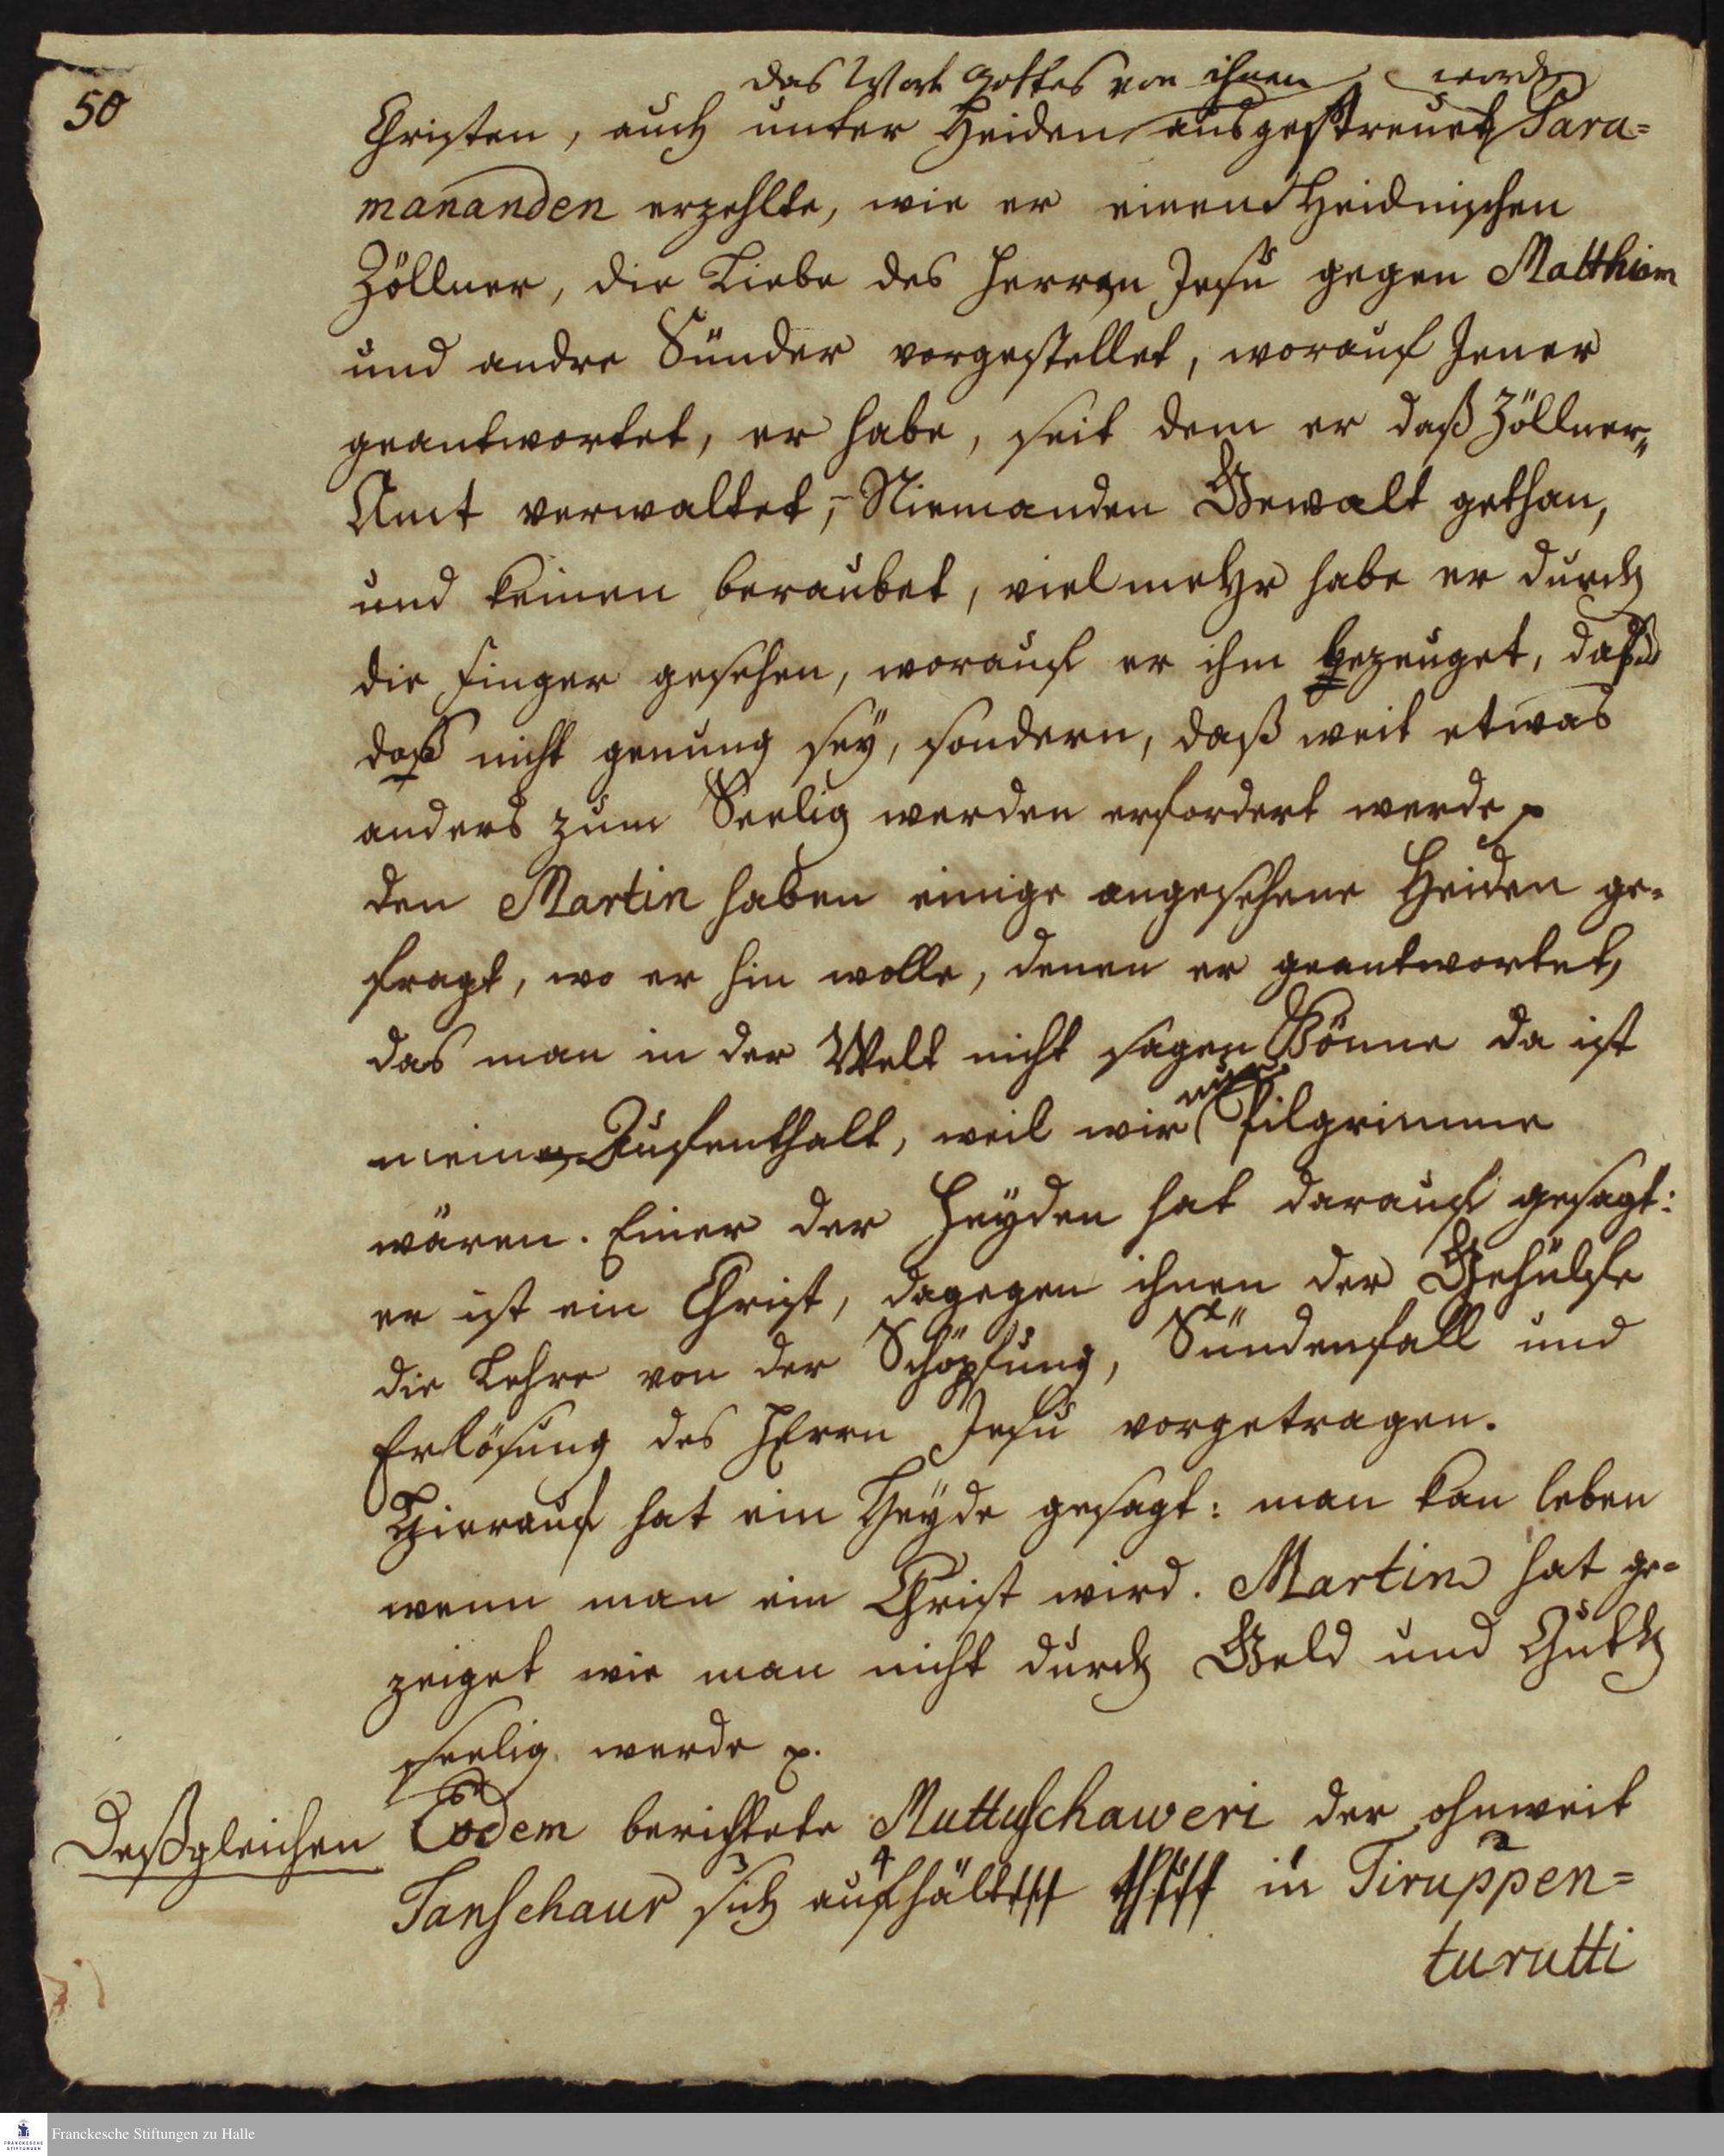 50
das Wort Gottes von ihnen worden
Christen, auch unter Heiden ausgestreuet Para=
mananden erzehlte, wie er einem Heidnischen
Zöllner, die Liebe des Herren Jesu gegen Matthæum
und andre Sünder vorgestellet, worauf Jener
geantwortet, er habe, seit dem er daß Zöllner„
Amt verwaltet, Niemanden Gewalt gethan,
und keinen beraubet, viel mehr habe er durch
die Finger gesehen, worauf er ihm bezeuget, daß
daß nicht genung seÿ, sondern, daß weit etwas
anders zum Seelig werden erfordert werde
den Martin haben einige angesehene Heiden ge-
fragt, wo er hin wolle, denen er geantwortet,
das man in der Welt nicht sagen könne da ist
mein Aufenthalt, weil wir nur Pilgrimme
wären. Einer der Heÿden hat darauf gesagt:
er ist ein Christ, dagegen ihnen der Gehülfe
die Lehre von der Schöpfung, Sündenfall und
Erlösung des HErrn Jesu vorgetragen.
Hierauf hat ein Heÿde gesagt: man kan leben
wenn man ein Christ wird. Martin hat ge-
zeiget wie man nicht durch Geld und Güth
seelig werde
Deßgleichen Eodem berichtete Muttuschaweri der ohnweit
Tanschaur sich aufhält in Tiruppen=
turutti
Franckesche Stiftungen zu Halle